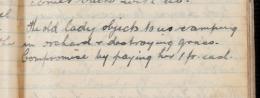 The old lady objects to us camping
in orchard & destroying grass.
Compromise by paying her 1 fr. each.